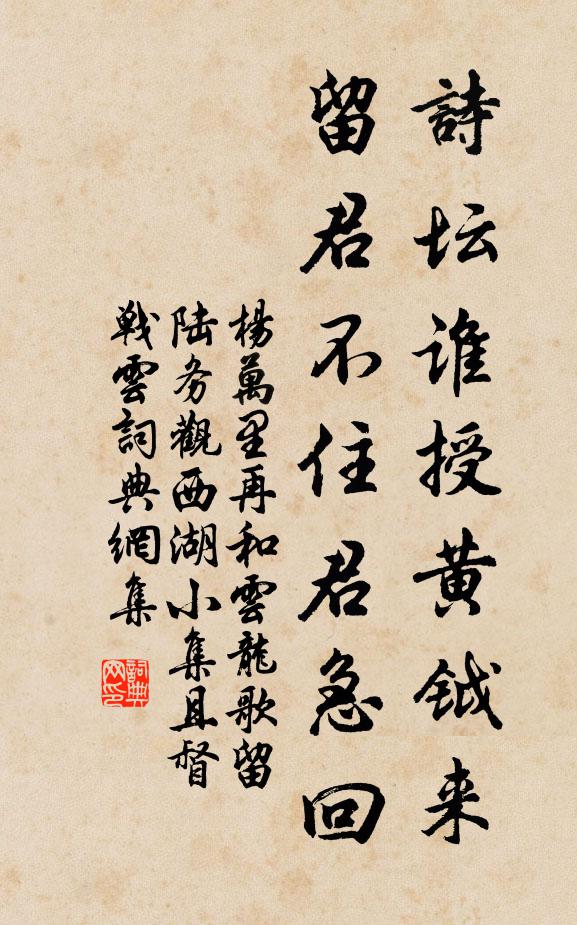 詩坛谁授黄钺来
留君不住君急回
楊萬里再和雲龍歌留
陆务觀西湖小集且督
戦雲詞典網集
詞典网印